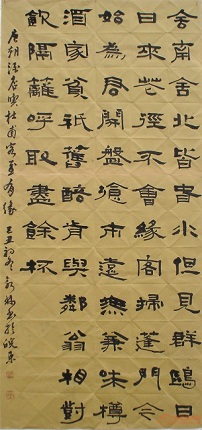 舍南舍北皆春水但見群鷗日
日來花徑不曾緣客掃蓬門今
始為君開盤飧市遠無兼味樽
酒家貧祇舊醅肯與鄰翁相對
飲隔籬呼取盡餘杯
唐朝 杜甫 己丑初冬